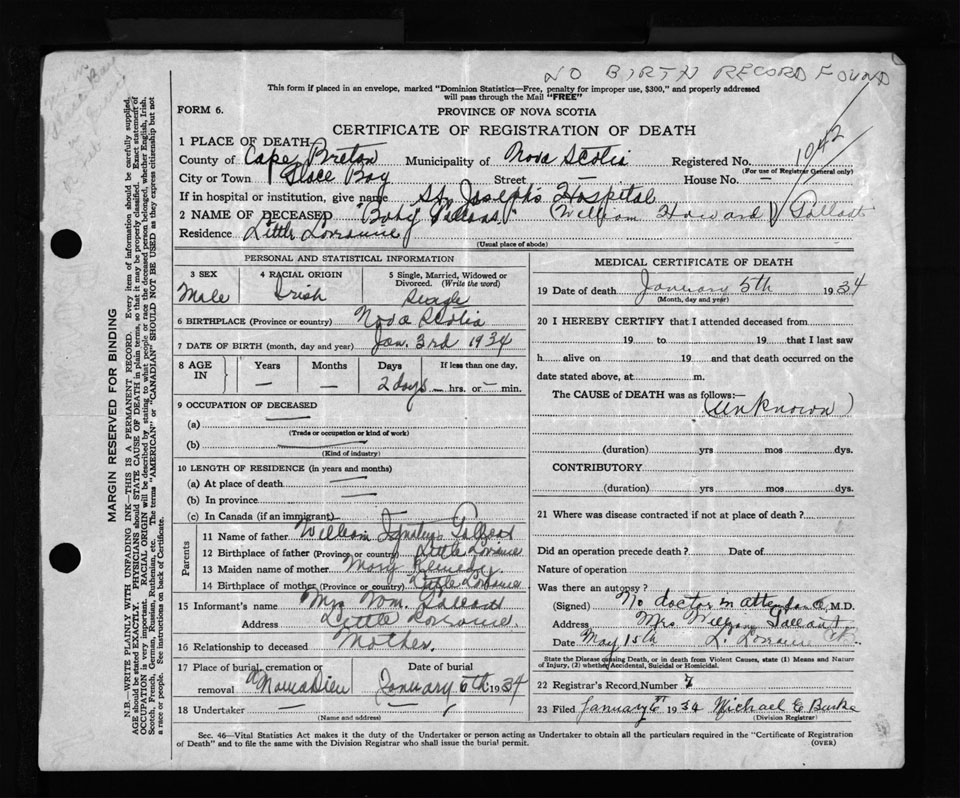 NO BIRTH RECORD FOUND
This form if placed in an envelope, marked "Dominion Statistics—Free, penalty for improper use, $300," and properly addressed
will pass through the Mail "FREE"
FORM 6.
PROVINCE OF NOVA SCOTIA
CERTIFICATE OF REGISTRATION OF DEATH
1942
1 PLACE OF DEATH
County of Cape Breton Municipality of Nova Scotia Registered No.
(For use of Registrar General only)
City or Town Glace Bay Street — House No. —
If in hospital or institution, give name St. Joseph's Hospital
2 NAME OF DECEASED Baby Gallant (William Howard) Gallant
Residence Little Lorraine
(Usual place of abode)
PERSONAL AND STATISTICAL INFORMATION
3 SEX 4 RACIAL ORIGIN 5 Single, Married, Widowed or Divorced. (Write the word)
Male Irish Single
6 BIRTHPLACE (Province or country) Nova Scotia
7 DATE OF BIRTH (month, day and year) Jan. 3rd 1934
8 AGE IN Years Months Days If less than one day.
— — 2 days — hrs. or — min.
9 OCCUPATION OF DECEASED
(a)
(Trade or occupation or kind of work)
(b)
(Kind of industry)
10 LENGTH OF RESIDENCE (in years and months)
(a) At place of death
(b) In province
(c) In Canada (if an immigrant)
Parents
11 Name of father William Ignatius Gallant
12 Birthplace of father (Province or country) Little Lorraine
13 Maiden name of mother Mary Kennedy
14 Birthplace of mother (Province or country) Little Lorraine
15 Informant's name Mrs Wm. Gallant
Address Little Lorraine.
16 Relationship to deceased Mother.
17 Place of burial, cremation or removal Date of burial
January 6th 1934
18 Undertaker — —
(Name and address)
MEDICAL CERTIFICATE OF DEATH
19 Date of death January 5th 1934
(Month, day and year)
20 I HEREBY CERTIFY that I attended deceased from
19 to 19 that I last saw
h alive on 19 and that death occurred on the
date stated above, at m.
The CAUSE of DEATH was as follows:—
(unknown)
(duration) yrs mos dys.
CONTRIBUTORY
(duration) yrs mos dys.
21 Where was disease contracted if not at place of death?
Did an operation precede death? Date of
Nature of operation
Was there an autopsy?
(Signed) No doctor in attendance M.D.
Address Mrs William Gallant
Date May 15th L. Lorraine
State the Disease causing Death, or in death from Violent Causes, state (1) Means and Nature
of Injury, (2) whether Accidental, Suicidal or Homicidal.
22 Registrar's Record Number 7
23 Filed January 6th 1934 Michael C Burke
(Division Registrar)
Sec. 46—Vital Statistics Act makes it the duty of the Undertaker or person acting as Undertaker to obtain all the particulars required in the "Certificate of Registration
of Death" and to file the same with the Division Registrar who shall issue the burial permit.
(OVER)
MARGIN RESERVED FOR BINDING
N.B.—WRITE PLAINLY WITH UNFADING INK—THIS IS A PERMANENT RECORD. Every item of information should be carefully supplied.
AGE should be stated EXACTLY. PHYSICIANS should STATE CAUSE OF DEATH in plain terms, so that it may be properly classified. Exact statement of
OCCUPATION is very important. RACIAL ORIGIN will be described by stating to what people or race the deceased person belonged, whether English, Irish,
Scotch, French, German, Russian, Ruthenian, etc. The terms "AMERICAN" or "CANADIAN" SHOULD NOT BE USED as they express citizenship but not
a race or people. See instructions on back of Certificate.